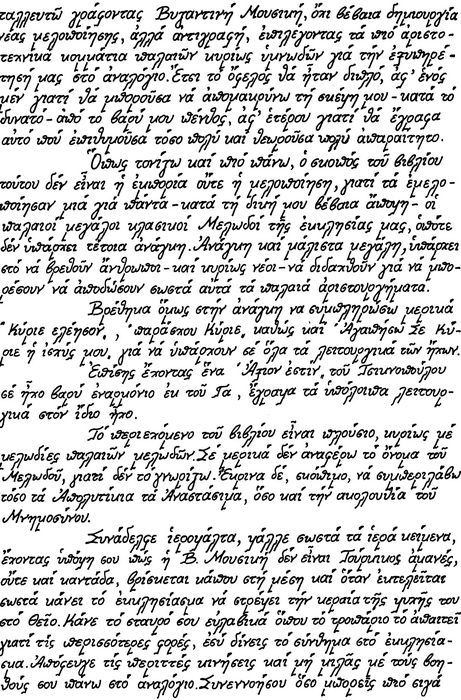 ταλλευτῶ γράφοντας Βυζαντινή Μουσική, ὄχι βέβαια δημιουργία
νέας μελοποίησης, ἀλλά ἀντιγραφή, ἐπιλέγοντας τά πιό ἀριστο-
τεχνικά κομμάτια παλαιῶν κυρίως ὑμνωδῶν γιά τήν ἐξυπηρέ-
τησή μας στό ἀναλόγιο. Ἔτσι τό ὄφελος θά ἦταν διπλό, ἀφ' ἑνός
μέν γιατί θά μποροῦσα νά ἀπομακρύνω τή σκέψη μου - κατά τό
δυνατό - ἀπό τό βαρύ μου πένθος, ἀφ' ἑτέρου γιατί θά ἔγραφα
αὐτό πού ἐπιθυμοῦσα τόσο πολύ καί θεωροῦσα πολύ ἀπαραίτητο.
Ὅπως τονίζω καί πιό πάνω, ὁ σκοπός τοῦ βιβλίου
τούτου δέν εἶναι ἡ ἐμπορία οὔτε ἡ μελοποίηση, γιατί τά ἐμελο-
ποίησαν μιά γιά πάντα - κατά τή δική μου βέβαια ἄποψη - οἱ
παλαιοί μεγάλοι κλασικοί Μελωδοί τῆς ἐκκλησίας μας, ὁπότε
δέν ὑπάρχει τέτοια ἀνάγκη. Ἀνάγκη καί μάλιστα μεγάλη, ὑπάρχει
στό νά βρεθοῦν ἄνθρωποι - καί κυρίως νέοι - νά διδαχθοῦν γιά νά μπο-
ρέσουν νά ἀποδώσουν σωστά αὐτά τά παλαιά ἀριστουργήματα.
Βρέθηκα ὅμως στήν ἀνάγκη νά συμπληρώσω μερικά
"Κύριε ἐλέησον", "παράσχου Κύριε" καθώς καί "Ἀγαπήσω Σε Κύ-
ριε ἡ ἰσχύς μου" γιά νά ὑπάρχουν σέ ὅλα τά λειτουργικά τῶν ἤχων.
Ἐπίσης ἔχοντας ἕνα "Ἄξιον ἐστίν" τοῦ Τσικνοπούλου
σέ ἦχο βαρύ ἐναρμόνιο ἐκ τοῦ Γα, ἔγραψα τά ὑπόλοιπα λειτουρ-
γικά στόν ἴδιο ἦχο.
Τό περιεχόμενο τοῦ βιβλίου εἶναι πλούσιο, κυρίως μέ
μελωδίες παλαιῶν μελωδῶν. Σέ μερικά δέν ἀναφέρω τό ὄνομα τοῦ
Μελωδοῦ, γιατί δέν τό γνωρίζω. Ἔκρινα δέ, σκόπιμο, νά συμπεριλάβω
τόσο τά Ἀπολυτίκια τά Ἀναστάσιμα, ὅσο καί τήν ἀκολουθία τοῦ
Μνημοσύνου.
Συνάδελφε ἱεροψάλτα, ψάλλε σωστά τά ἱερά κείμενα,
ἔχοντας ὑπόψη σου πώς ἡ Β. Μουσική δέν εἶναι Τούρκικος ἀμανές,
οὔτε καί καντάδα, βρίσκεται κάπου στή μέση καί ὅταν ἐκτελεῖται
σωστά κάνει τό ἐκκλησίασμα νά στρέφει τήν κεραία τῆς ψυχῆς του
στό Θεῖο. Κάνε τό σταυρό σου εὐλαβικά ὅπου τό τροπάριο τό ἀπαιτεῖ
γιατί τίς περισσότερες φορές, ἐσύ δίνεις τό σύνθημα στό ἐκκλησία-
σμα. Ἀπόφευγε τίς περιττές κινήσεις καί μή μιλᾶς μέ τούς βοη-
θούς σου πάνω στό ἀναλόγιο. Συνεννοήσου ὅσο μπορεῖς πιό σιγά